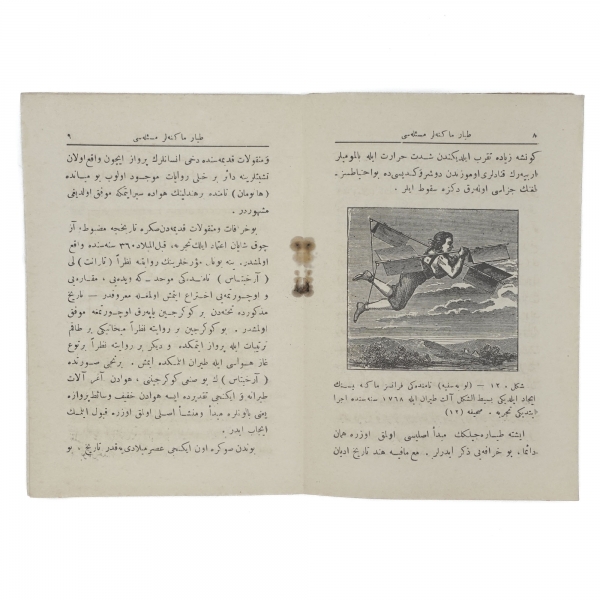 ٨ طیار ماكنه‌لر مسئله‌سی
كونشه زیاده تقرب ایلدیكندن شدت حرارت ایله بالمومیلر
اریبه‌رك قنادلری اوموزندن دوشر و كندیسی ده بو احتیاطسز-
لغك جزاسی اوله‌رق دكزه سقوط ایلر .
شكل . ١٢ — ( ) نامنده‌كی فرانسز ماكنه
ایجاد ایلدیكی بسیط الشكل آلت طیران ایله ١٧٦٨ سنه‌سنده اجرا
ایتدیكی تجربه . صحیفه (١٢)
ایشته طیاره‌جیلكك مبدأ اصلیسی اولمق اوزره همان
دائما، بو خرافه‌یی ذكر ایدرلر . مع مافیه هند تاریخ ادیان
طیار ماكنه‌لر مسئله‌سی ٩
و منقولات قدیمه‌سنده دخی انسانلرك پرواز ایچون واقع اولان
تشبثلرینه دائر بر خیلی روایات موجود اولوب بو میانده
(هانومان) نامنده هواده سیر ایتمكه موفق اولدیغی
مشهوردر .
بو خرافات و منقولات قدیمه‌دن صكره تاریخجه مضبوط، از
چوق شایان اعتماد ایلك تجربه ، قبل المیلاد ٣٦٠ سنه‌سنده واقع
اولمشدر. مؤرخلرینك روایتنه نظراً (تارانت) لی
(آرخیتاس) نامنده‌كی موجد — كه ویده‌یی ، مقاره‌یی
و اوچورتمه‌یی اختراع ایتمش اولمغله معروفدر — تاریخ
مذكورده تخته‌دن بر كوكرجین یاپه‌رق اوچورتمغه موفق
اولمشدر . بو كوكرجین بر روایته نظراً میخانیكی بر طاقم
ترتیبات ایله پرواز ایتمكده و دیكر بر روایته نظراً بر نوع
غاز هوائی ایله طیران ایتمكده ایمش . برنجی صورتده
(آرخیتاس) ك بو صنعی كوكرجینی ، هوادن آغیر آلات
طیرانه و ایكنجی تقدیرده ایسه هوادن خفیف وسائط پروازه
یعنی بالونلره مبدأ و منشأ اصلی اولمق اوزره قبول ایتمك
ایجاب ایدر .
بوندن صوكره اون ایكنجی عصر میلادی‌یه قدر تاریخ ، بو